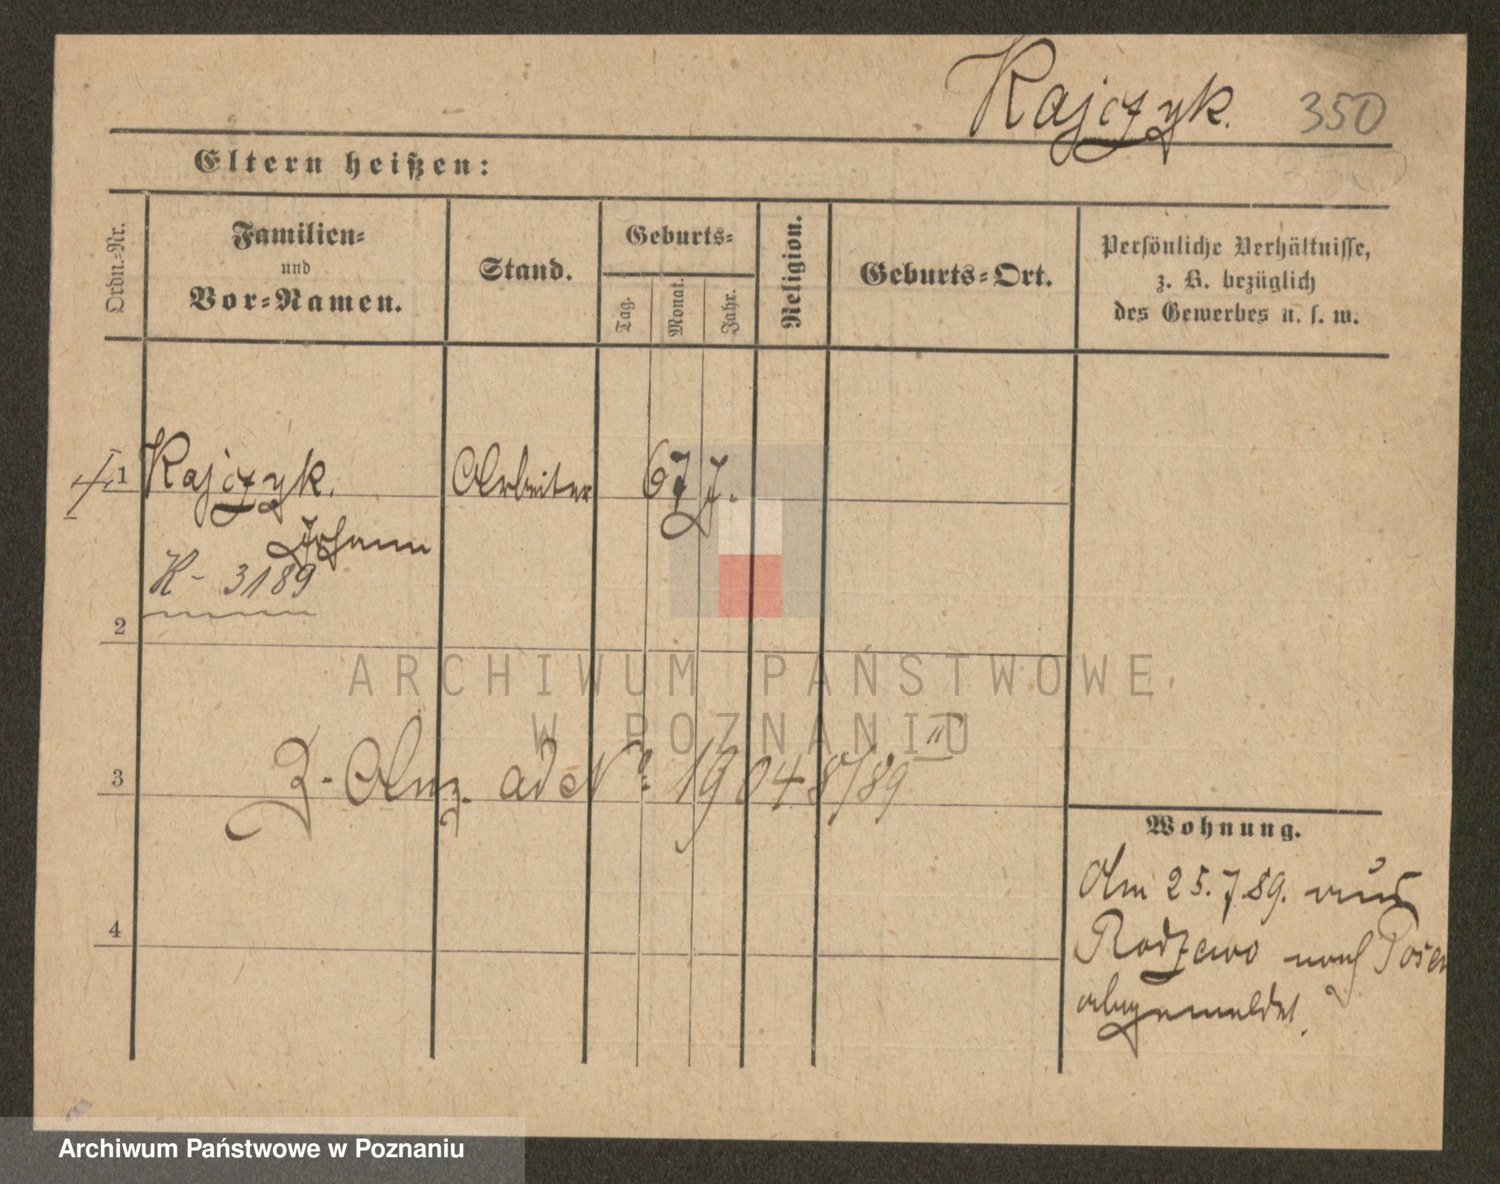 Kajczyk. 350
Eltern heißen:
Ordn.-Nr.
Familien-
und
Vor-Namen.
Stand.
Geburts-
Tag.
Monat.
Jahr.
Religion.
Geburts-Ort.
Persönliche Verhältnisse,
z. B. bezüglich
des Gewerbes u. s. w.
1 Kajczyk. Arbeiter 67 J.
Johann
K- 3189
2
ARCHIWUM PAŃSTWOWE
W POZNANIU
3 Z. Anz. ad No 19048/89 II
4
Wohnung.
Am 25.7 89. aus
Radzewo nach Posen
abgemeldet.
Archiwum Państwowe w Poznaniu